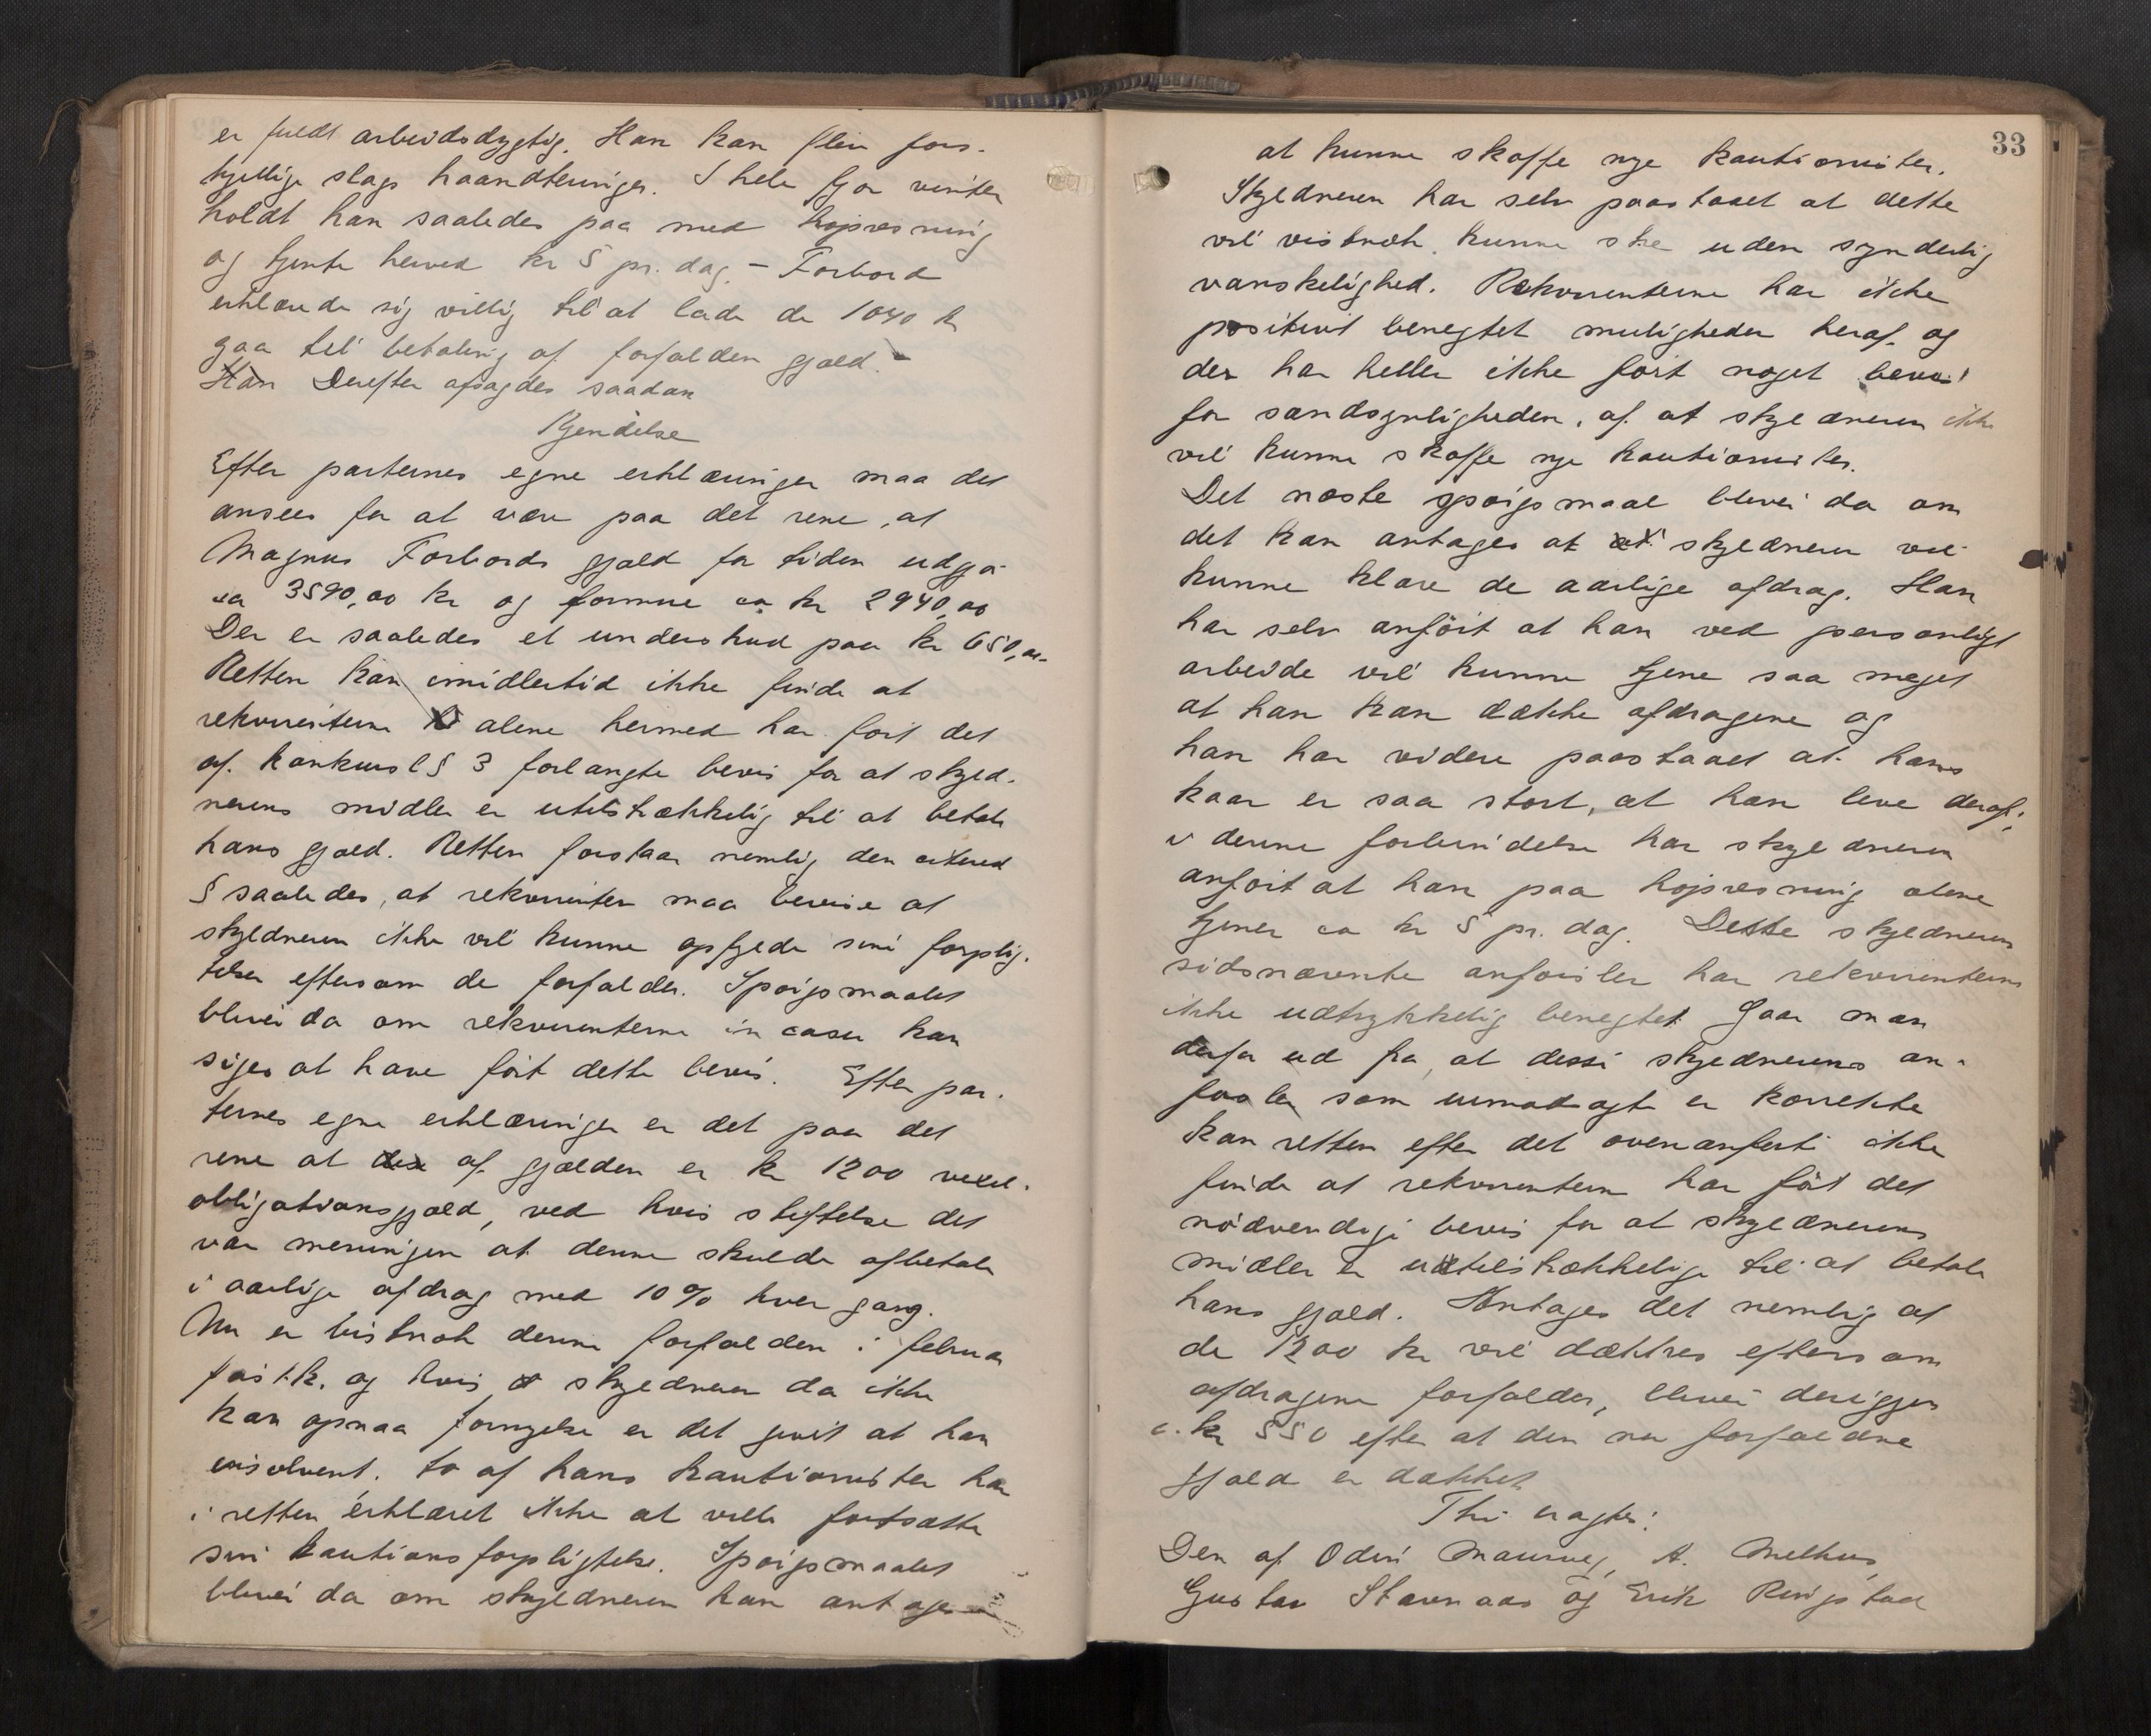 er fuldt arbeidsdygtig. Han kan flere for-
skjellige slags haandteringer. I hele fjor vinter
holdt han saaledes paa med høipresning
og tjente herved kr 5 pr. dag. - Forbord
erklærede sig villig til at lade de 1040 kr
gaa til betaling af forfalden gjæld. -
Han Derefter afsagdes saadan
Kjendelse
Efter parternes egne erklæringer maa det
ansees for at være paa det rene, at
Magnus Forbords gjæld for tiden udgjør
ca 3590,00 kr og formue ca kr 2940,00
Der er saaledes et underskud paa kr 650,00.
Retten kan imidlertid ikke finde at
rekvirenterne alene hermed har ført det
af konkursl § 3 forlangte bevis for at skyld-
nerens midler er utilstrækkelig til at betale
hans gjæld. Retten forstaar nemlig den citered
§ saaledes, at rekvirenten maa bevise at
skyldneren ikke vil kunne opfylde sine forplig-
telser eftersom de forfalder. Spørgsmaalet
bliver da om rekvirenterne in casu kan
siges at have ført dette bevis. Efter par-
ternes egne erklæringer er det paa det
rene at af gjælden er kr 1200 vexel-
obligationsgjæld, ved hvis stiftelse det
var meningen at denne skulde afbetales
i aarlige afdrag med 10 % hver gang.
Nu er vistnok denne forfalden i februar
førstk. og hvis skyldneren da ikke
kan opnaa fornyelse er det givet at han
insolvent. to af hans kautionister har
i retten erklæret ikke at ville fortsætte
sin kautionsforpligtelse. Spørgsmaalet
bliver da om skyldneren kan antages
33
at kunne skaffe nye kautionister.
Skyldneren har selv paastaaet at dette
vil vistnok kunne ske uden synderlig
vanskelighed. Rekvirenterne har ikke
positivt benegtet muligheden heraf og
der har heller ikke ført noget bevis
for sandsynligheden af at skyldneren ikke
vil kunne skaffe nye kautionister.
Det næste spørgsmaal bliver da om
det kan antages at at skyldneren vil
kunne klare de aarlige afdrag. Han
har selv anført at han ved personligt
arbeide vil kunne tjene saa meget
at han kan dække afdragene og
han har videre paastaaet at hans
kaar er saa stort, at han leve deraf;
i denne forbindelse har skyldneren
anført at han paa høipresning alene
tjener ca kr 5 pr. dag. Dette skyldnerens
sidsnævnte anførsler har rekvirenterne
ikke udtrykkelig benegtet Gaar man
derfor ud fra, at disse skyldnerens an-
førsler som uimodsagte er korrekte
kan retten efter det ovenanførte ikke
finde at rekvirenterne har ført det
nødvendige bevis for at skyldnerens
midler er utilstrækkelige til at betale
hans gjæld. Antages det nemlig at
de 1200 kr vil dækkes eftersom
afdragene forfalder, bliver derigjen
c. kr 550 efter at den nu forfaldne
gjæld er dækket
Thi eragtes:
Den af Odin Maurveg, A. Melhus,
Gustav Stavnaas og Erik Ringstad